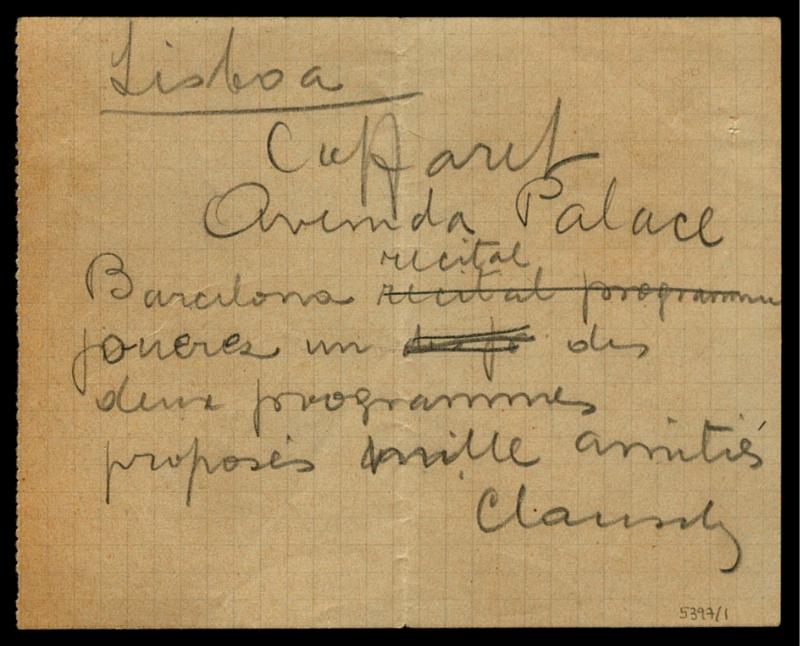 Lisboa
Cuffaret
Avenida Palace
recital
Barcelona recital programme
joueres un des
deux programmes
proposés mille amitiés
Clausels
5397/1